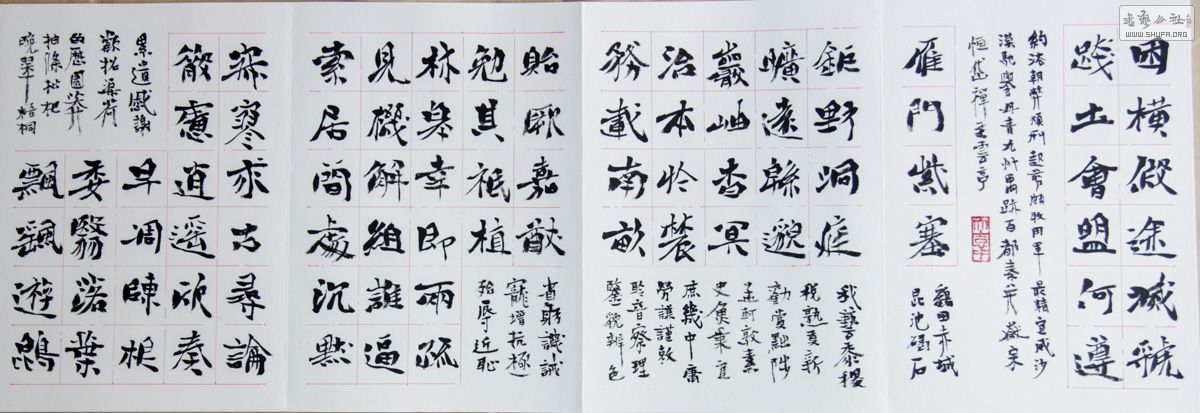 困橫假途滅虢
踐土會盟何遵
約法朝弊煩刑起翦頗牧用軍最精宣威沙
漠馳譽丹青九州禹跡百郡秦并嶽宗
恒岱禪主云亭
雁門紫塞
雞田赤城
昆池碣石
鉅野洞庭
曠遠緜邈
巖岫杳冥
治本於農
務載南畝
我藝黍稷
稅熟貢新
勸賞黜陟
孟軻敦素
史魚秉直
庶幾中庸
勞謙謹敕
聆音察理
鑒貌辨色
貽厥嘉猷
勉其祗植
省躬譏誡
寵增抗極
殆辱近恥
林皋幸即兩疏
見機解組誰逼
索居閒處沉默
寂寥求古尋論
散慮逍遙欣奏
累遣慼謝
歡招渠荷
的歷園莽
抽條枇杷
晚翠梧桐
早凋陳根
委翳落葉
飄颻遊鵾
书艺公社
WWW.SHUFA.ORG